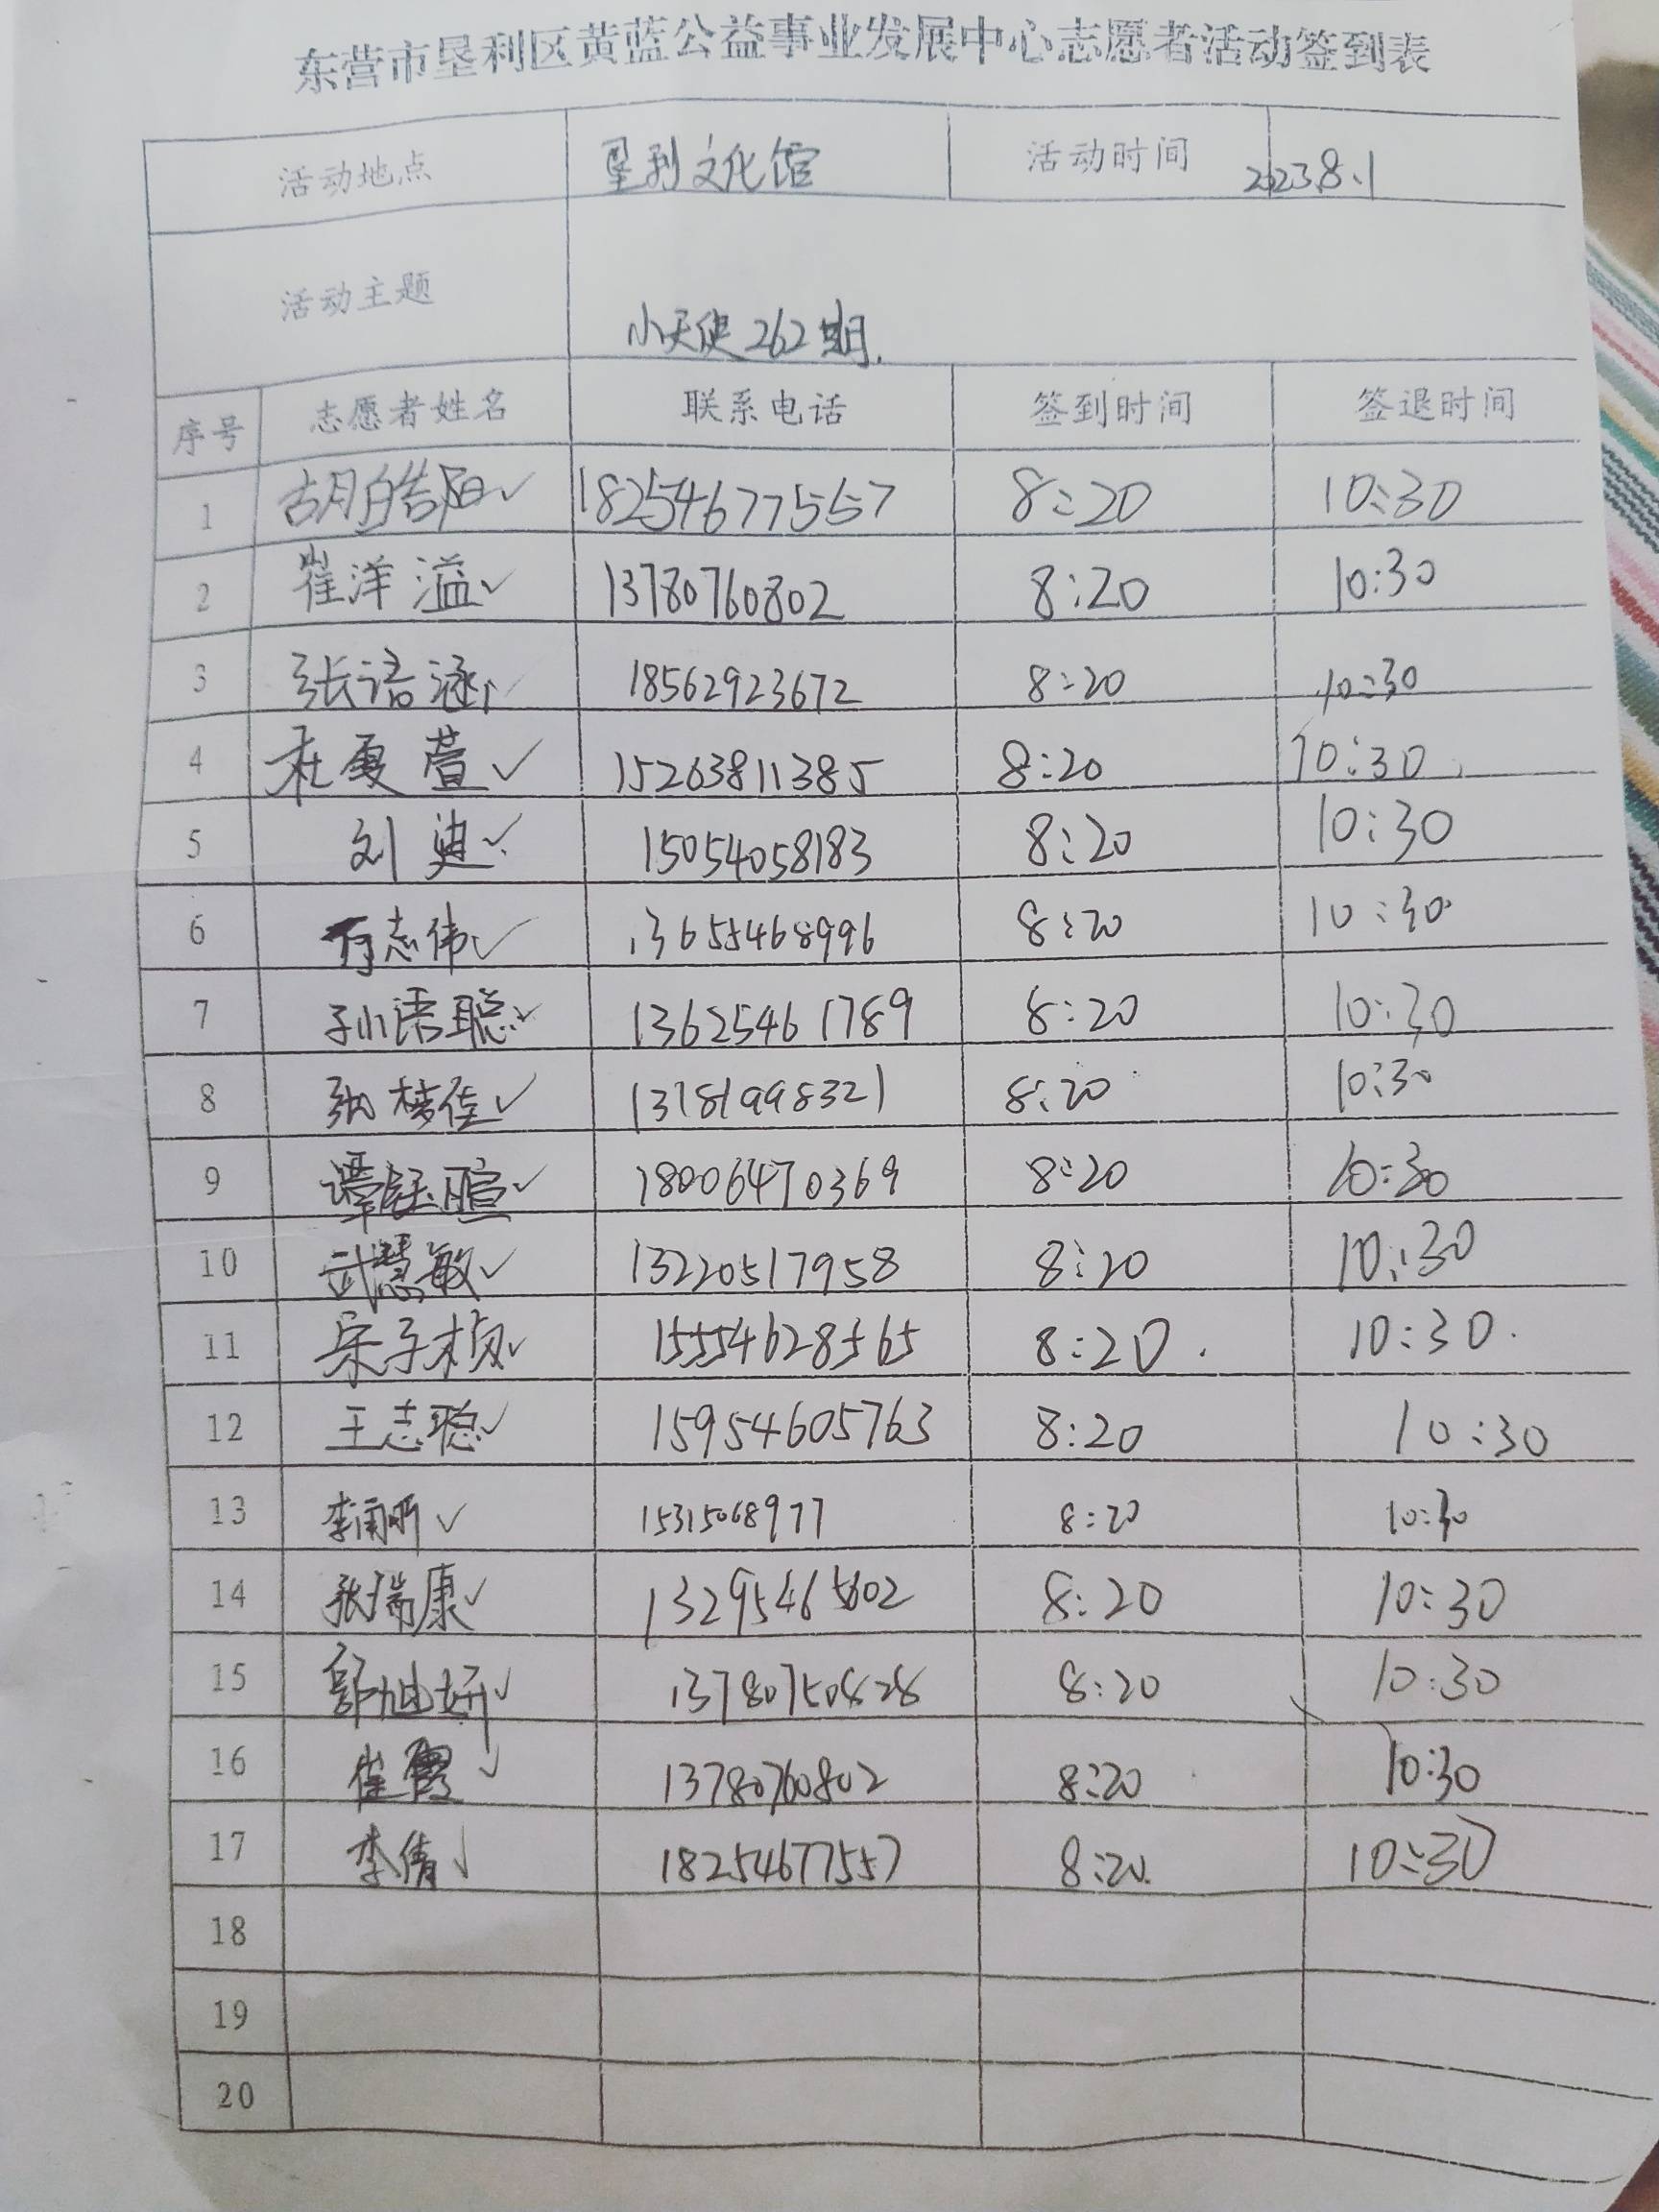 东营市垦利区黄蓝公益事业发展中心志愿者活动签到表
活动地点 垦利文化馆 活动时间 2023.8.1
活动主题 小天使262期.
序号 志愿者姓名 联系电话 签到时间 签退时间
1 胡皓阳✓ 18254677557 8:20 10:30
2 崔洋溢✓ 13780760802 8:20 10:30
3 张语涵✓ 18562923672 8:20 10:30
4 杜夏萱✓ 15263811385 8:20 10:30
5 刘迪✓ 15054058183 8:20 10:30
6 志伟✓ 13655468996 8:20 10:30
7 孙语聪✓ 13625461789 8:20 10:30
8 张梦佳✓ 13181998321 8:20 10:30
9 谭钰暄✓ 18006470369 8:20 10:30
10 武慧敏✓ 13220517958 8:20 10:30
11 宋子桢✓ 15554628565 8:20 10:30
12 王志聪✓ 15954605763 8:20 10:30
13 李雨昕✓ 15315068977 8:20 10:30
14 张瑞康✓ 13295465602 8:20 10:30
15 郭旭妍✓ 13780750828 8:20 10:30
16 崔霞✓ 13780760802 8:20 10:30
17 李倩✓ 18254677557 8:20 10:30
18
19
20